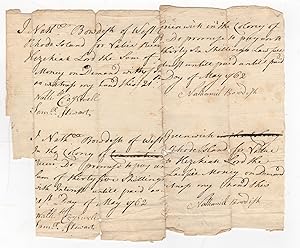 I Nathl. Bowdish of West Greenwich in the Colony of
Rhode Island for Value Recd do promise to pay unto
Hezekiah Lord the Sum of thirty Six Shillings Law full
Money on Demand with Interest untill paid as
witness my hand this 21 Day of May 1762
Nathaniel Bowdish
Saml. Stewart
I Nathl. Bowdish of West Greenwich
in the Colony of Rhode Island for Value
Recd do promise to pay unto Hezekiah Lord the
Sum of thirty five Shillings Lawfull Money on demand
with Interest untill paid as witness my hand this
21st Day of May 1762
Nathaniel Bowdish
Saml. Stewart